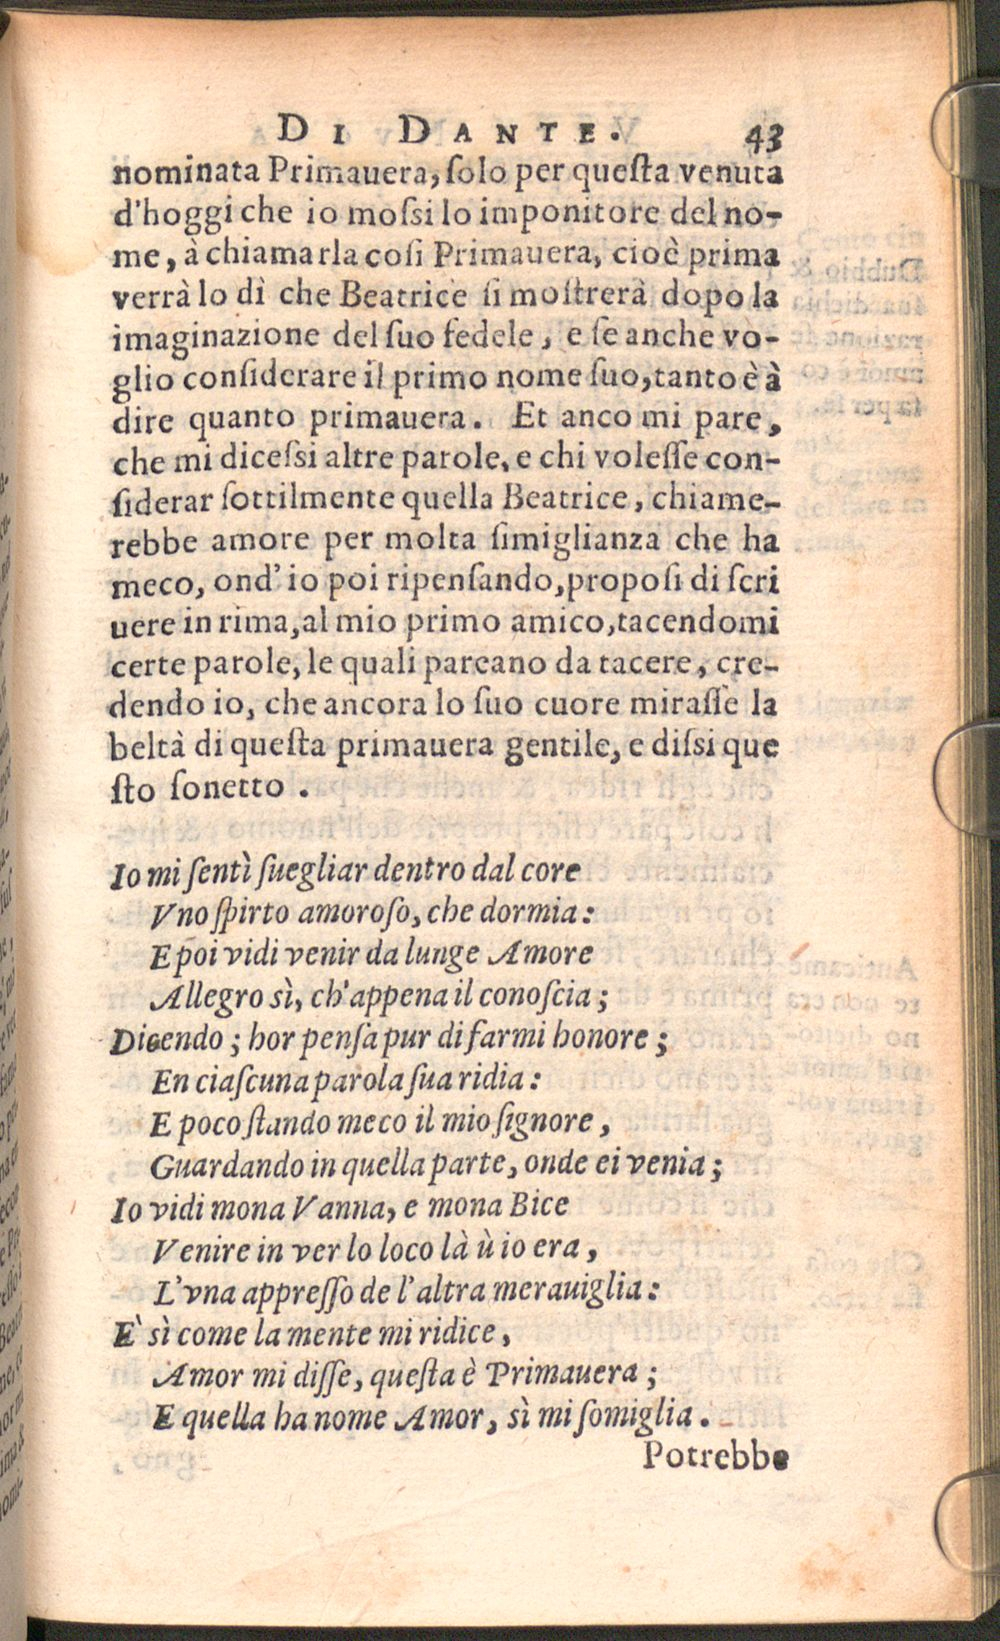 DI DANTE. 43
nominata Primauera, ſolo per queſta venuta
d'hoggi che io moſsi lo imponitore del no-
me, à chiamarla coſi Primauera, cioè prima
verrà lo dì che Beatrice ſi moſtrerà dopo la
imaginazione del ſuo fedele, e ſe anche vo-
glio conſiderare il primo nome ſuo, tanto è à
dire quanto primauera. Et anco mi pare,
che mi diceſsi altre parole, e chi voleſſe con-
ſiderar ſottilmente quella Beatrice, chiame-
rebbe amore per molta ſimiglianza che ha
meco, ond'io poi ripenſando, propoſi di ſcri
uere in rima, al mio primo amico, tacendomi
certe parole, le quali pareano da tacere, cre-
dendo io, che ancora lo ſuo cuore miraſſe la
beltà di queſta primauera gentile, e diſsi que
ſto ſonetto.
Io mi ſentì ſuegliar dentro dal core
Vno ſpirto amoroſo, che dormia:
E poi vidi venir da lunge Amore
Allegro sì, ch'appena il conoſcia;
Dicendo; hor penſa pur di farmi honore;
En ciaſcuna parola ſua ridia:
E poco ſtando meco il mio ſignore,
Guardando in quella parte, onde ei venia;
Io vidi mona Vanna, e mona Bice
Venire in ver lo loco là ù io era,
L'vna appreſſo de l'altra merauiglia:
E` sì come la mente mi ridice,
Amor mi diſſe, queſta è Primauera;
E quella ha nome Amor, sì mi ſomiglia.
Potrebbe